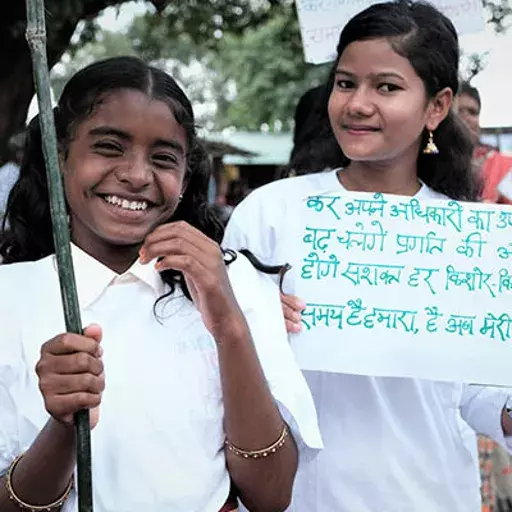 कर अपने अधिकारों का उप
बढ़ चलेंगे प्रगति की ओ
होंगे सशक्त हर किशोर कि
समय है हमारा, है अब मेरी